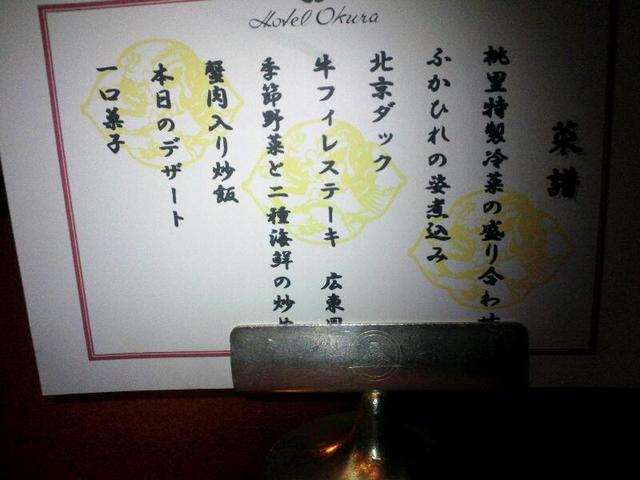 Hotel Okura
菜譜
桃里特製冷菜の盛り合わせ
ふかひれの姿煮込み
北京ダック
牛フィレステーキ 広東風
季節野菜と二種海鮮の炒め
蟹肉入り炒飯
本日のデザート
一口菓子